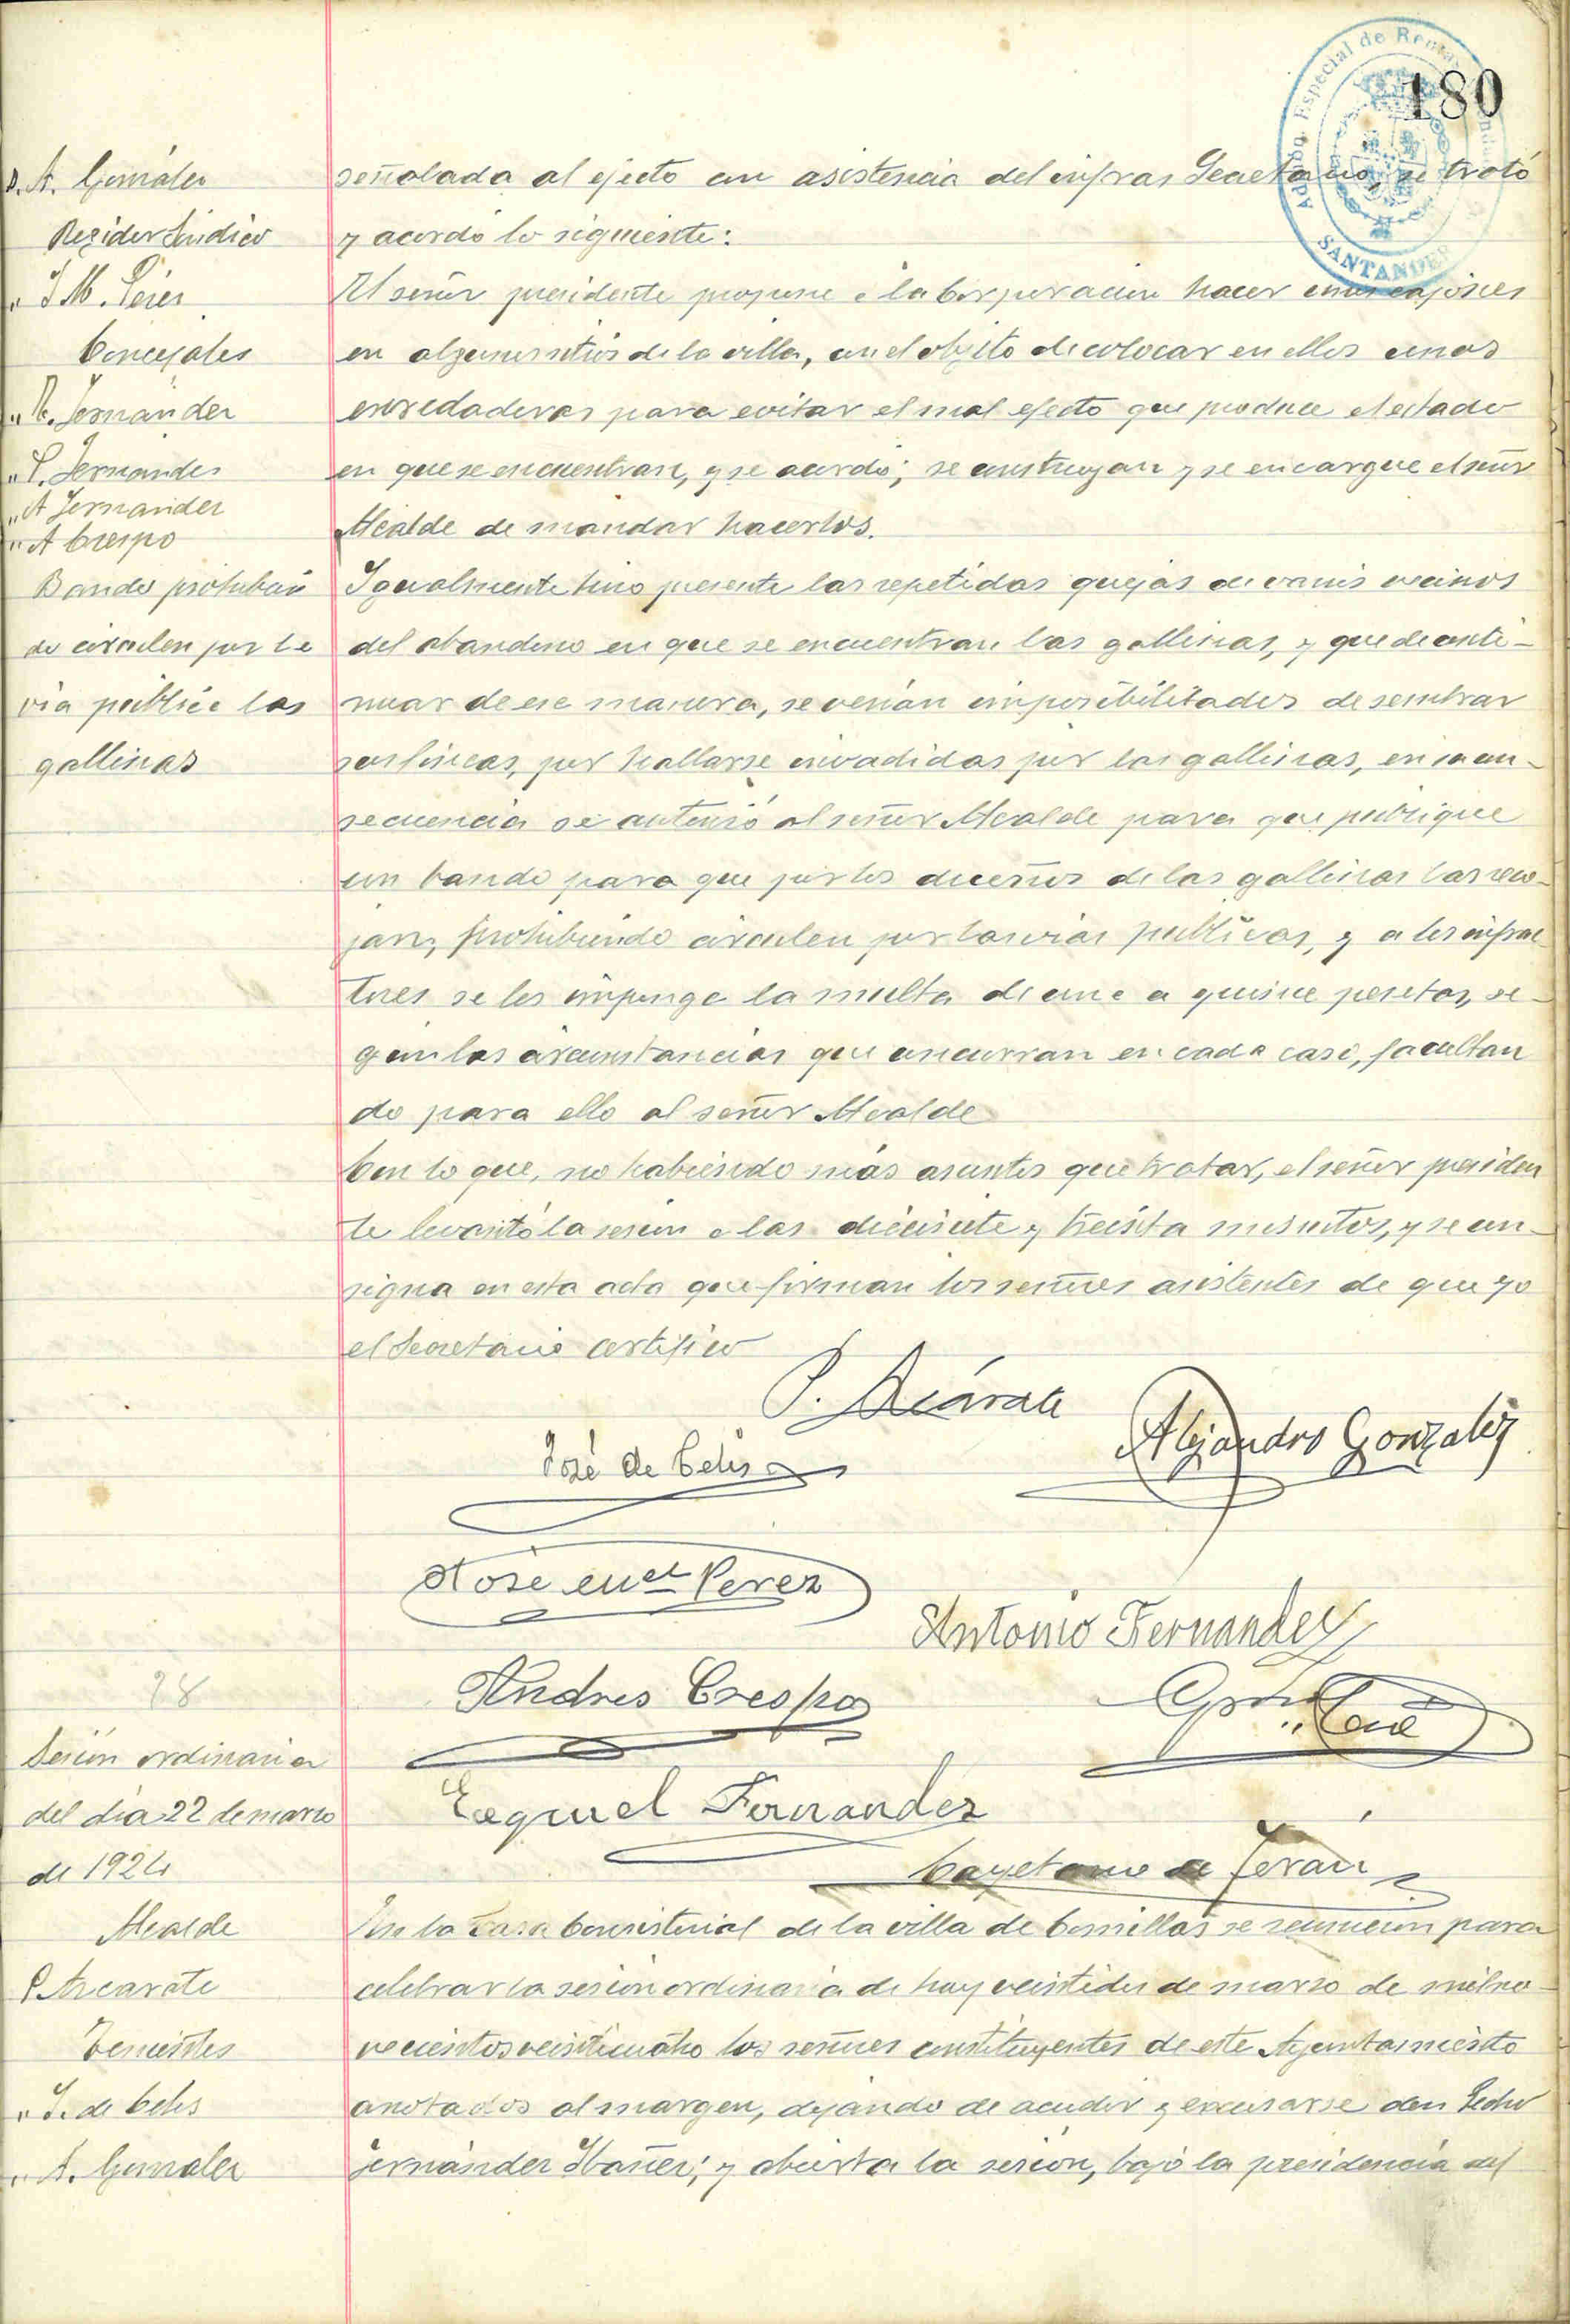 180
Admon. Especial de Rentas
SANTANDER
D. A. Gonzáler
Regidor Síndico
" J M. Pérer
Concejales
" E. Fernánder
" P. Fernánder
" A Fernánder
" A Crespo
Bando prohibien
do circulen por la
vía pública las
gallinas
señalada al efecto con asistencia del infras Secretario, se trató
y acordó lo siguiente:
El señor presidente propuso a la Corporación hacer unos cajones
en algunos sitios de la villa, con el objeto de colocar en ellos unas
enredaderas para evitar el mal efecto que produce el estado
en que se encuentran, y se acordó; se construyan y se encargue el señor
Alcalde de mandar hacerlos.
Igualmente hizo presente las repetidas quejas de varios vecinos
del abandono en que se encuentran las gallinas, y que de conti-
nuar de ese manera, se verían imposibilitados de sembrar
sus fincas, por hallarse invadidas por las gallinas, en su con-
secuencia se autorizó al señor Alcalde para que publique
un bando para que por los dueños de las gallinas las reco-
jan, prohibiendo circulen por las vías públicas, y a los infrac
tores se les imponga la multa de una a quince pesetas, se-
gún las circunstancias que concurran en cada caso, facultan
do para ello al señor Alcalde
Con lo que, no habiendo más asuntos que tratar, el señor presiden
te levantó la sesión a las diecisiete y treinta minutos, y se con-
signa en esta acta que firman los señores asistentes de que yo
el Secretario certifico
P. Azcárate
Alejandro Gonzalez
José de Celis
Jose Mel Perez
Antonio Fernandez
Andres Crespo
Ezequiel Fernandez
Cayetano de Terán
28
Sesión ordinaria
del día 22 de marzo
de 1924
Alcalde
P Azcarate
Tenientes
" J. de Celis
" A. Gonzaler
En la Casa Consistorial de la villa de Comillas se reunieron para
celebrar la sesión ordinaria de hoy veintidos de marzo de mil no-
vecientos veinticuatro los señores constituyentes de este Ayuntamiento
anotados al margen, dejando de acudir y excusarse don Pedro
Fernánder Ibañer; y abierta la sesión, bajo la presidencia del